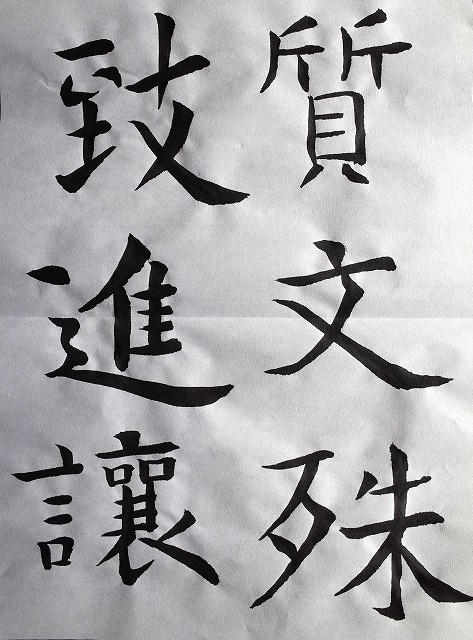 質文殊
致進讓